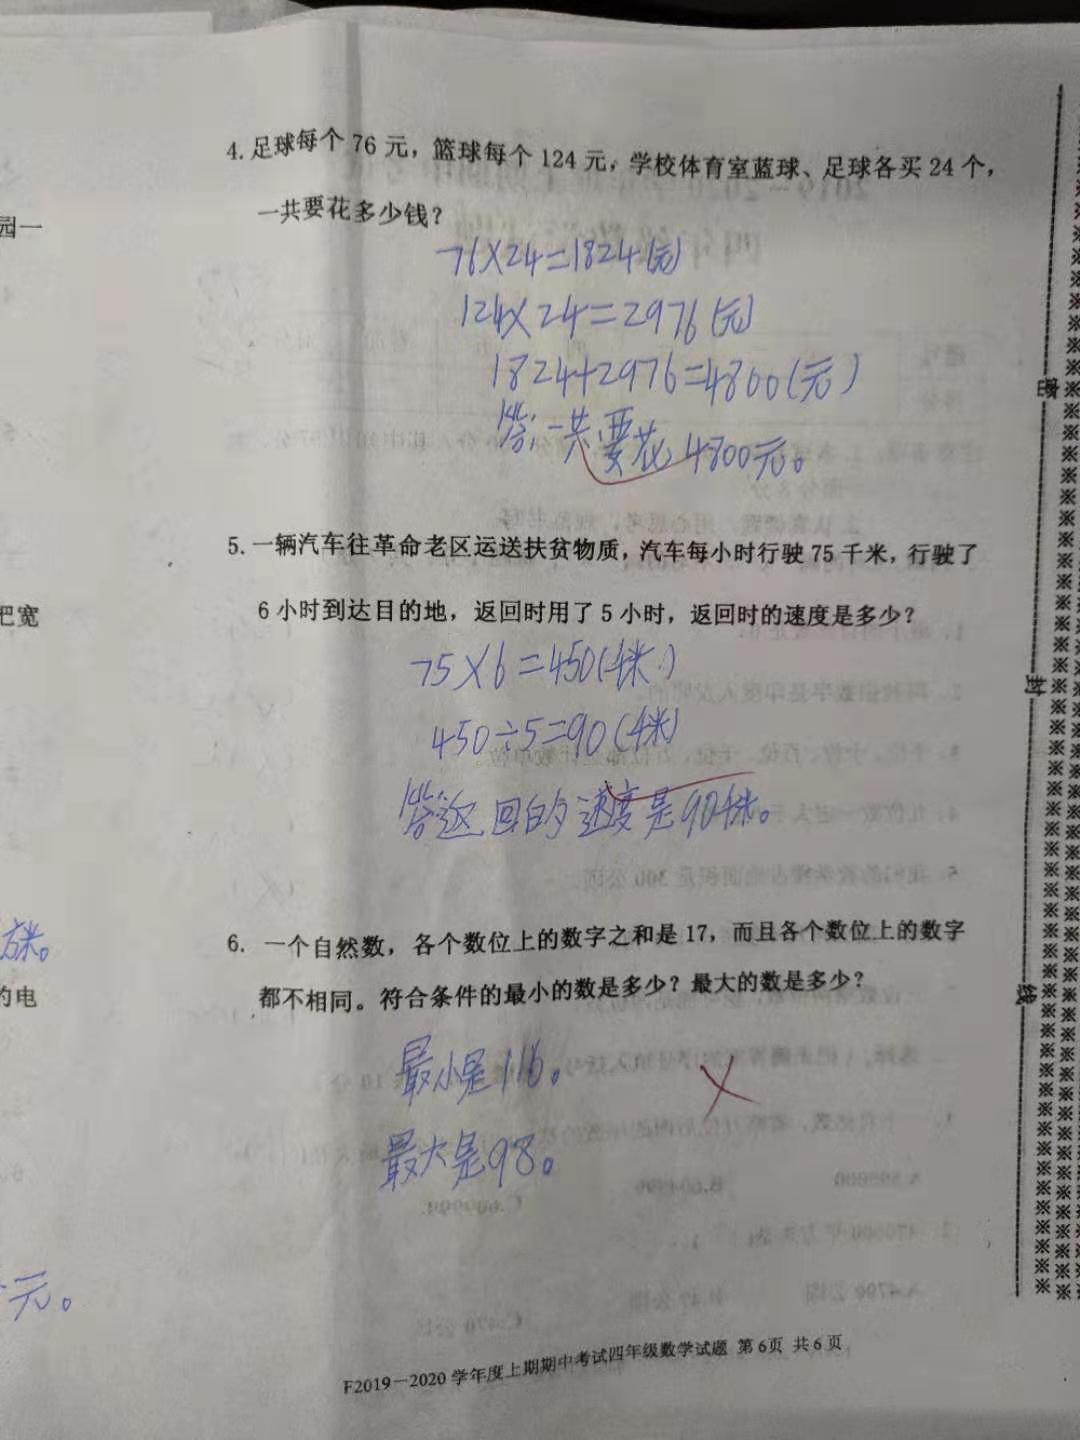 园一
4.足球每个76元，篮球每个124元，学校体育室蓝球、足球各买24个，
一共要花多少钱？
76×24=1824(元)
124×24=2976(元)
1824+2976=4800(元)
答：一共要花4800元。
5.一辆汽车往革命老区运送扶贫物质，汽车每小时行驶75千米，行驶了
把宽
6小时到达目的地，返回时用了5小时，返回时的速度是多少？
75×6=450(千米)
450÷5=90(千米)
答返回的速度是90千米。
6. 一个自然数，各个数位上的数字之和是17，而且各个数位上的数字
方米。
都不相同。符合条件的最小的数是多少？最大的数是多少？
的电
最小是116。
最大是98。
元。
密
封
线
F2019－2020学年度上期期中考试四年级数学试题 第6页 共6页